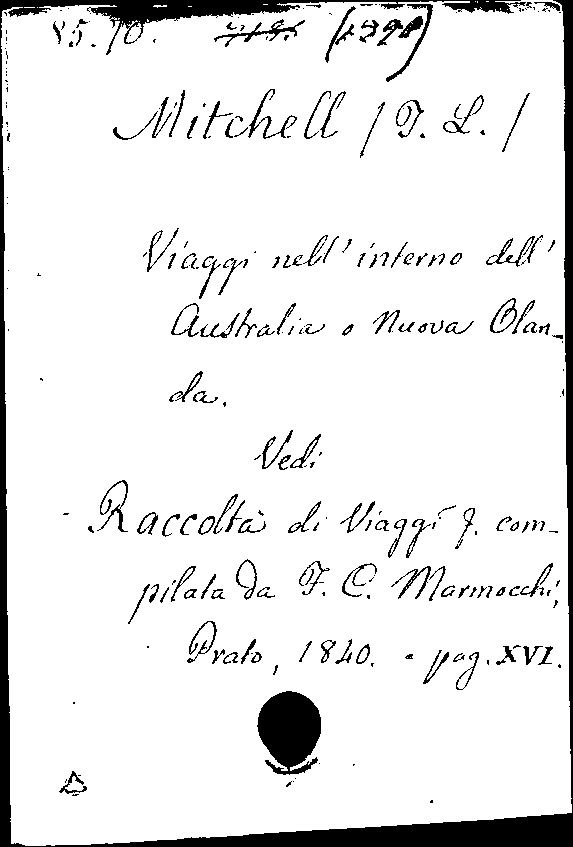 85.70. 7185 (1790)
Mitchell / T. L. /
Viaggi nell' interno dell'
Australia o Nuova Olan-
da.
Vedi
Raccolta di Viaggi com-
pilata da F. C. Marmocchi,
Prato, 1840. - pag. XVI.